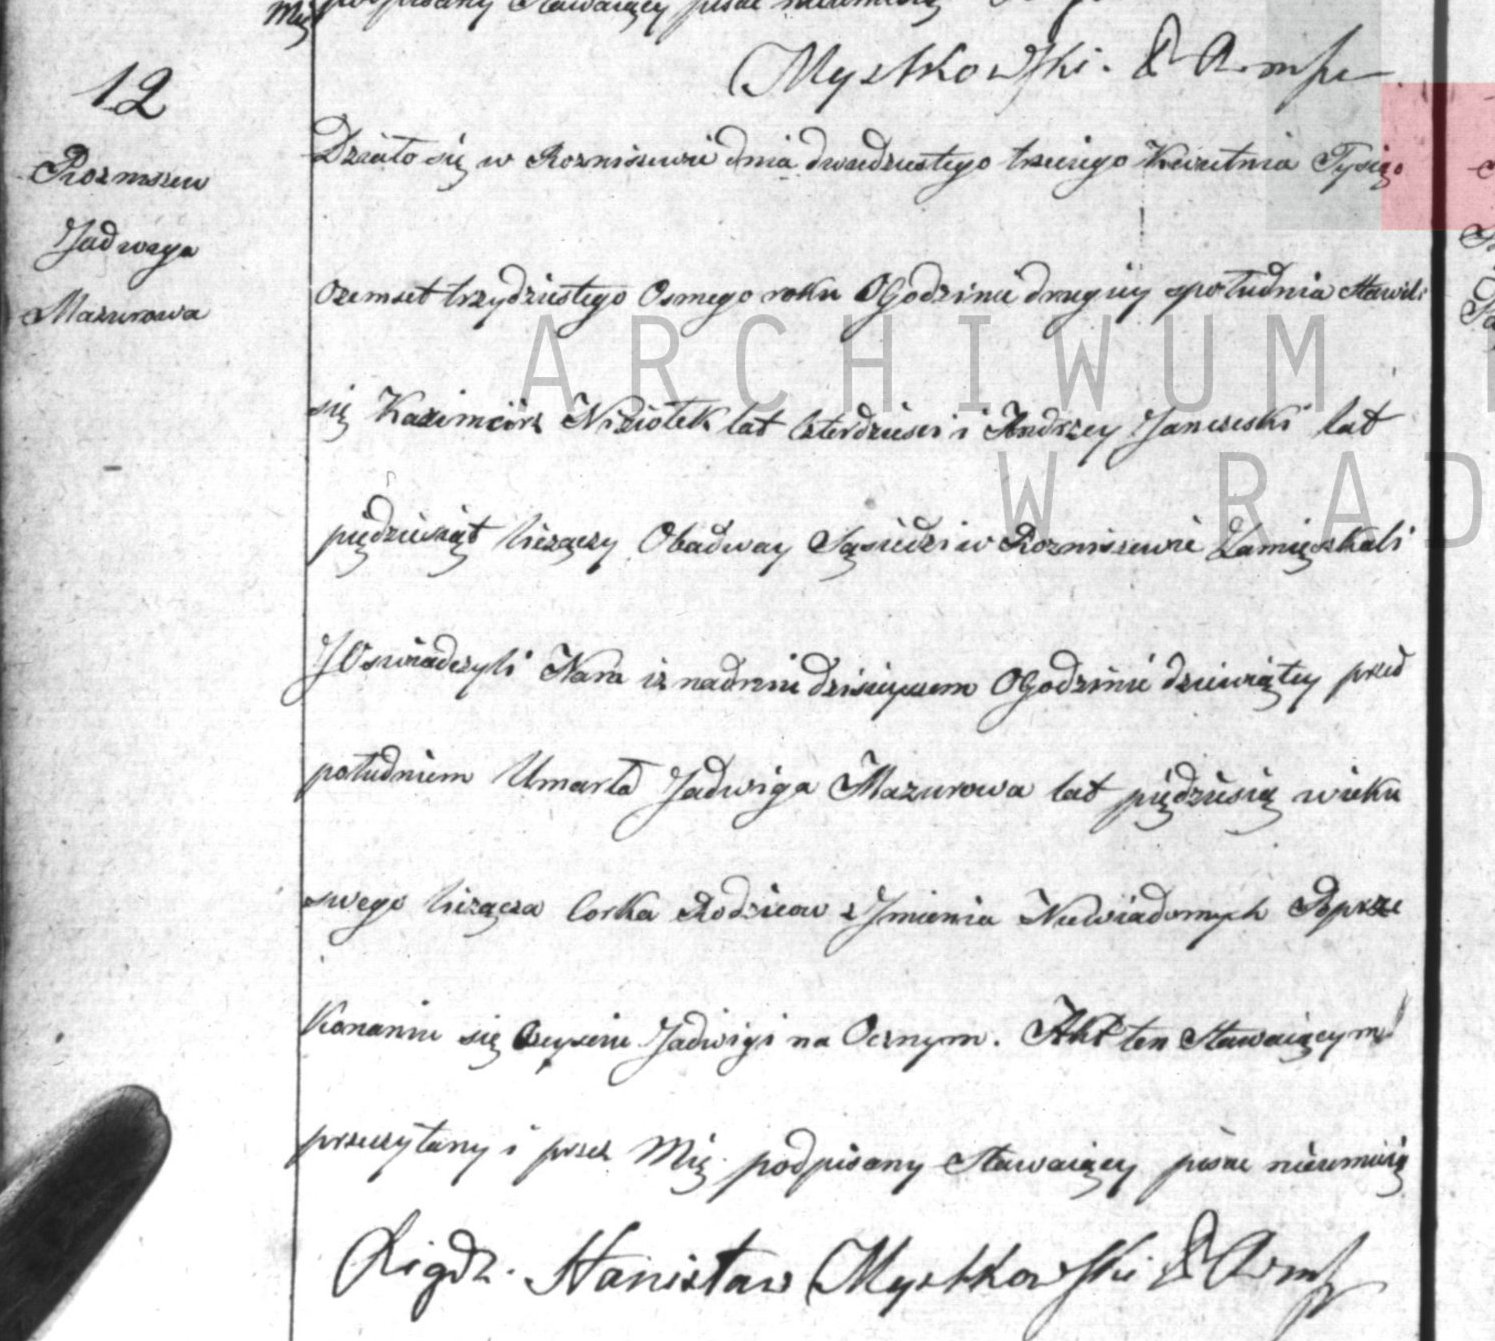 Mię podpisany Stawaiący pisac nieumieią
Mystkowski.
12
Rozniszew
Jadwiga
Mazurowa
Działo się w Rozniszewie dnia dwudziestego trzeciego Kwietnia Tysiąc
Ozemset trzydziestego Osmego roku O Godzinie drugiey społudnia Stawili
się Kazimierz Niziołek lat Czterdziesci i Andrzey Janczeski lat
piędziesiąt liczączy Obadway Sąsiedzi w Rozniszewie Zamięszkali
J Oswiadczyli Nam iz nadniu dzisieyszem O Godzinie dziewiątey przed
południem Umarła Jadwiga Mazurowa lat piędziesią wieku
swego licząca Corka Rodzicow z Jmienia Niewiadomych Poprze
Konaniu się Oczysciu Jadwigi na Ocznym. Akt ten Stawaiącym
przeczytany i przez Mię podpisany Stawaiący pisac nieumieią
Stanisław Mystkowski
ARCHIWUM
W RAD